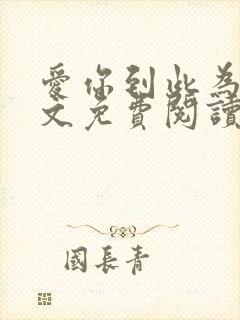 愛你到此為
文免費閱讀
國長青